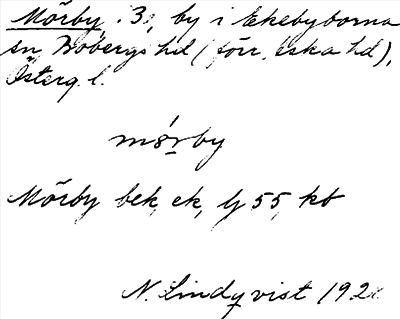 Mörby, 3, by i Ekebyborna
sn, Bobergs hd (förr Aska hd),
Österg. l.
mö́rby
Mörby bek, ek, lj 55, kb
N. Lindqvist 192